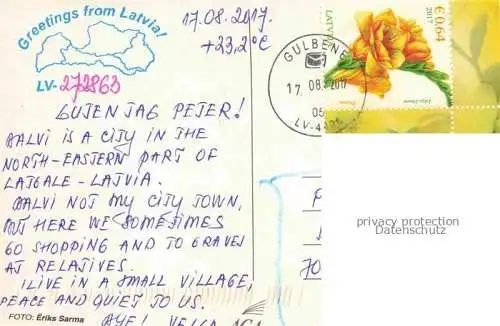 Greetings from Latvia!
17.08.2017.
+23,2°C
LV-272863
GUTEN TAG PETER!
BALVI IS A CITY IN THE
NORTH-EASTERN PART OF
LATGALE - LATVIA.
BALVI NOT MY CITY TOWN,
BUT HERE WE SOMETIMES
GO SHOPPING AND TO GRAVES
AT RELATIVES.
I LIVE IN A SMALL VILLAGE,
PEACE AND QUIET TO US.
FOTO: Ēriks Sarma
GULBENE
17.08.2017
05
LATVIJA
2017
€0,64
P
70
privacy protection
Datenschutz